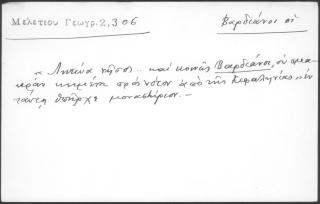 Μελετίου Γεωγρ. 2,306
Βαρδιάνοι οἱ
« Λητώα νῆσος .. καὶ κοινῶς Βαρδιάνοι, οὐ μα-
κρὰν κειμένη πρὸς νότον ἀπὸ τῆς Κεφαληνίας ἐν
ταύτῃ ὑπῆρχε μοναστήριον. —